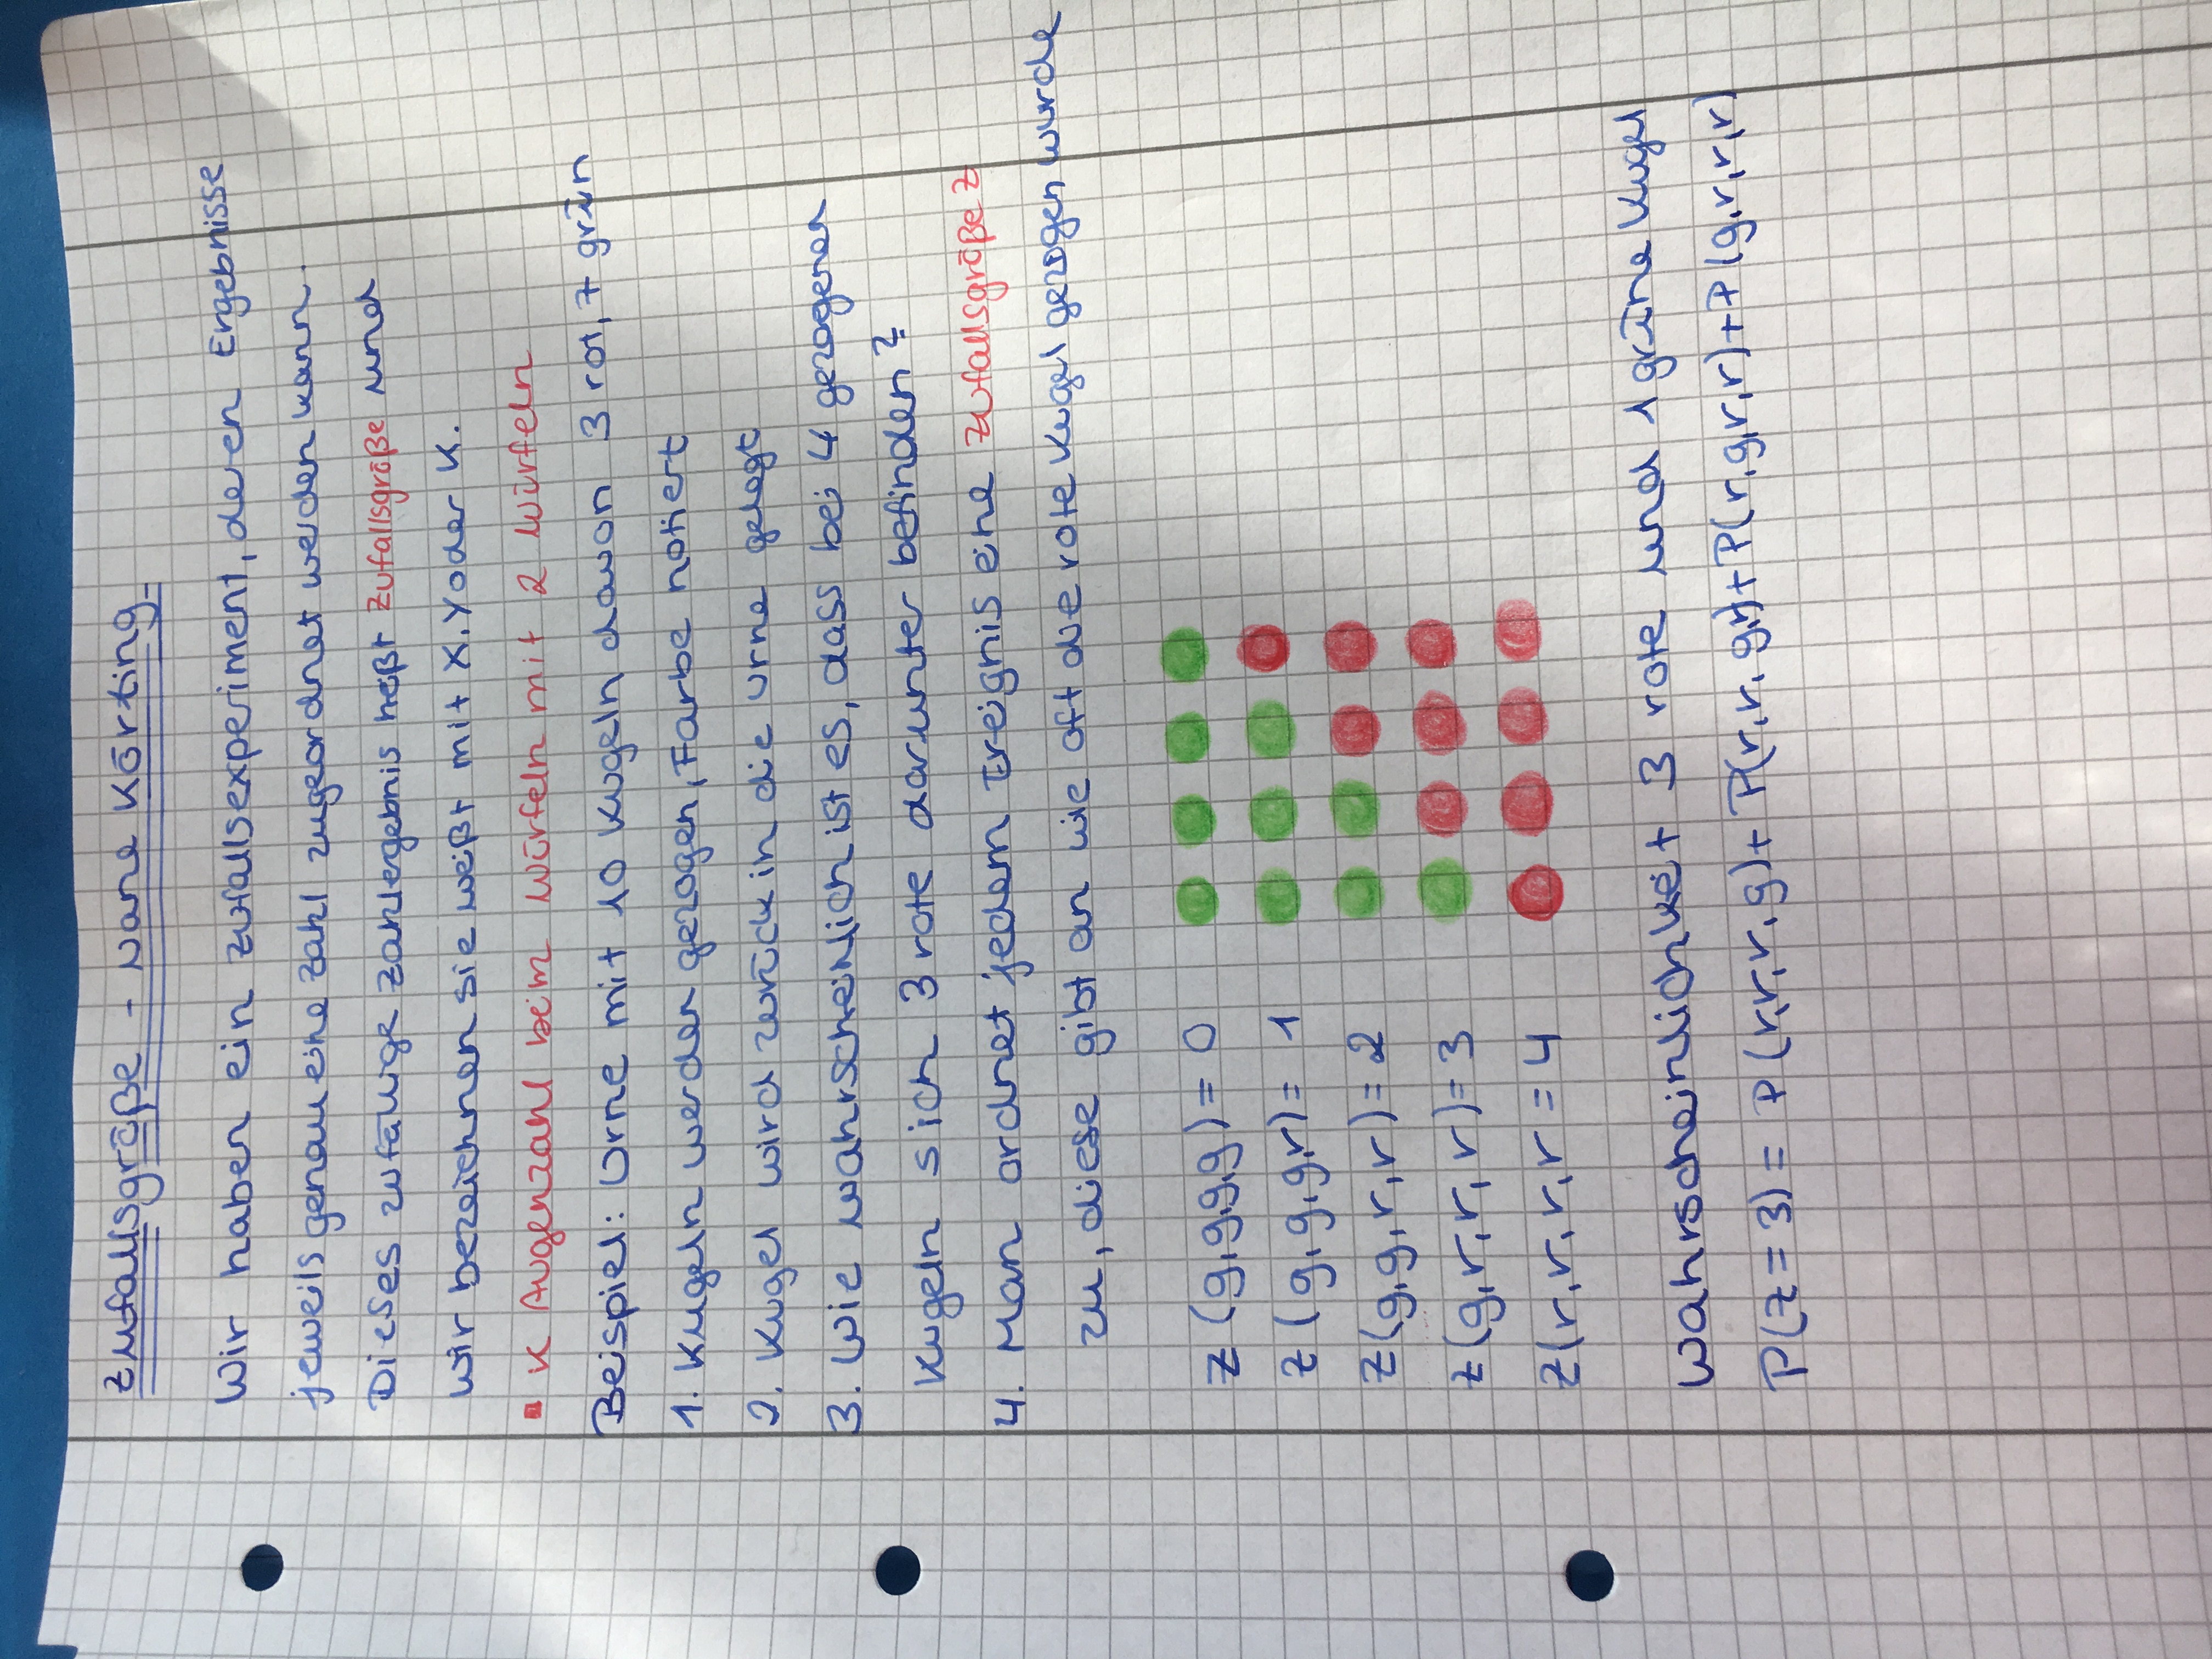 Zufallsgröße - Nane Körting
Wir haben ein Zufallsexperiment, deven Ergebnisse
jeweils genau eine Zahl zugeordnet werden kann.
Dieses zufällige Zahlergebnis heißt Zufallsgröße und
wir bezeichnen sie weißt mit X,Y oder K.
▪ K Augenzahl beim Würfeln mit 2 Würfeln
Beispiel: Urne mit 10 Kugeln davon 3 rot, 7 grün
1. Kugeln werden gezogen, Farbe notiert
2. Kugel wird zurück in die Urne gelegt
3. Wie wahrscheinlich ist es, dass bei 4 gezogenen
Kugeln sich 3 rote darunter befinden?
4. Man ordnet jedem Ereignis eine Zufallsgröße Z
zu, diese gibt an wie oft die rote Kugel gezogen wurde
Z (g,g,g,g) = 0
Z (g,g,g,r) = 1
Z (g,g,r,r) = 2
Z (g,r,r,r) = 3
Z (r,r,r,r = 4
Wahrscheinlichkeit 3 rote und 1 grüne Kugel
P(Z=3) = P (r,r,r,g) + P(r,r,g,r) + P(r,g,r,r) + P(g,r,r,r)